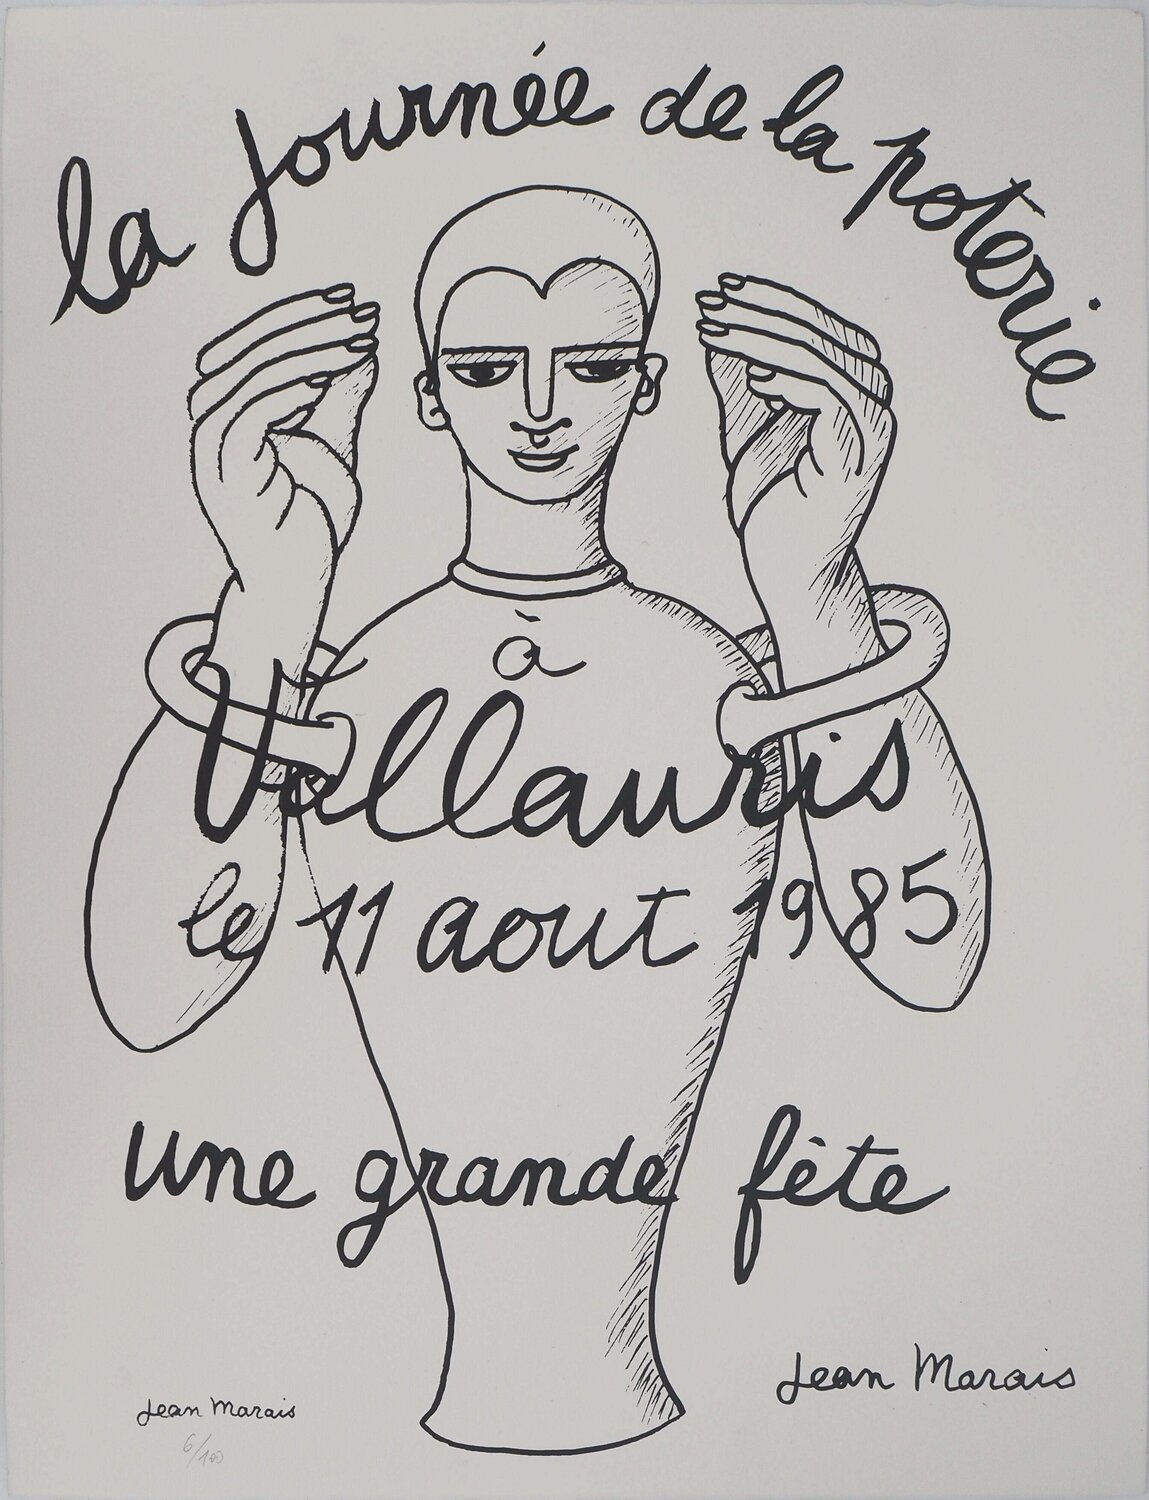 la Journée de la poterie
à
Vallauris
le 11 aout 1985
une grande fête
Jean Marais
Jean Marais
6/100